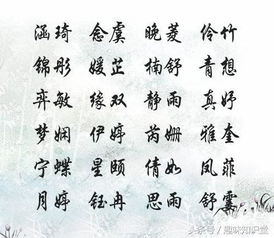 涵琦 念虞 晚菱 伶竹
锦彤 媛芷 楠舒 青想
弈敏 缘双 静雨 真妤
梦娴 伊婷 芮姗 雅奎
宁蝶 星颐 倩如 凤菲
月婷 钰冉 思雨 舒霭
头条号/趣味知识堂